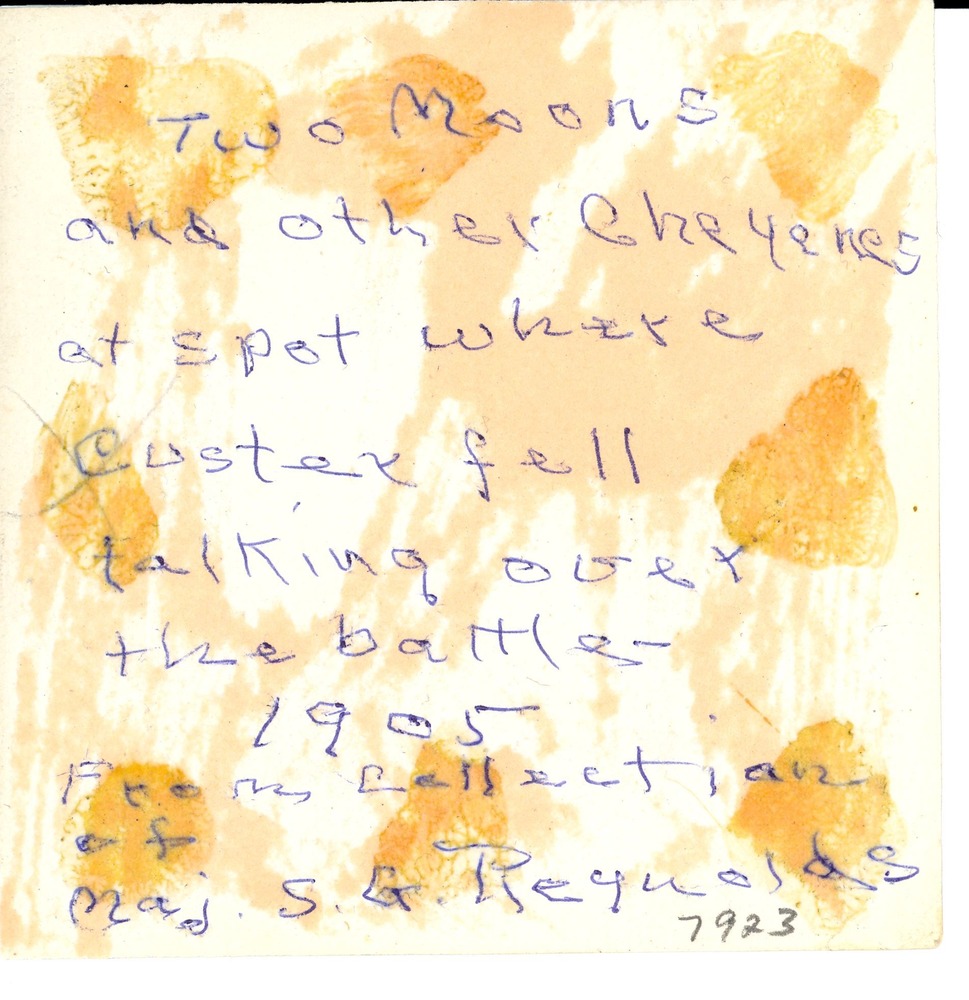 Two Moons
and other Cheyenes
at spot where
Custer fell
talking over
the battle-
1905
From Collection
of
Maj. S. G. Reynolds
7923